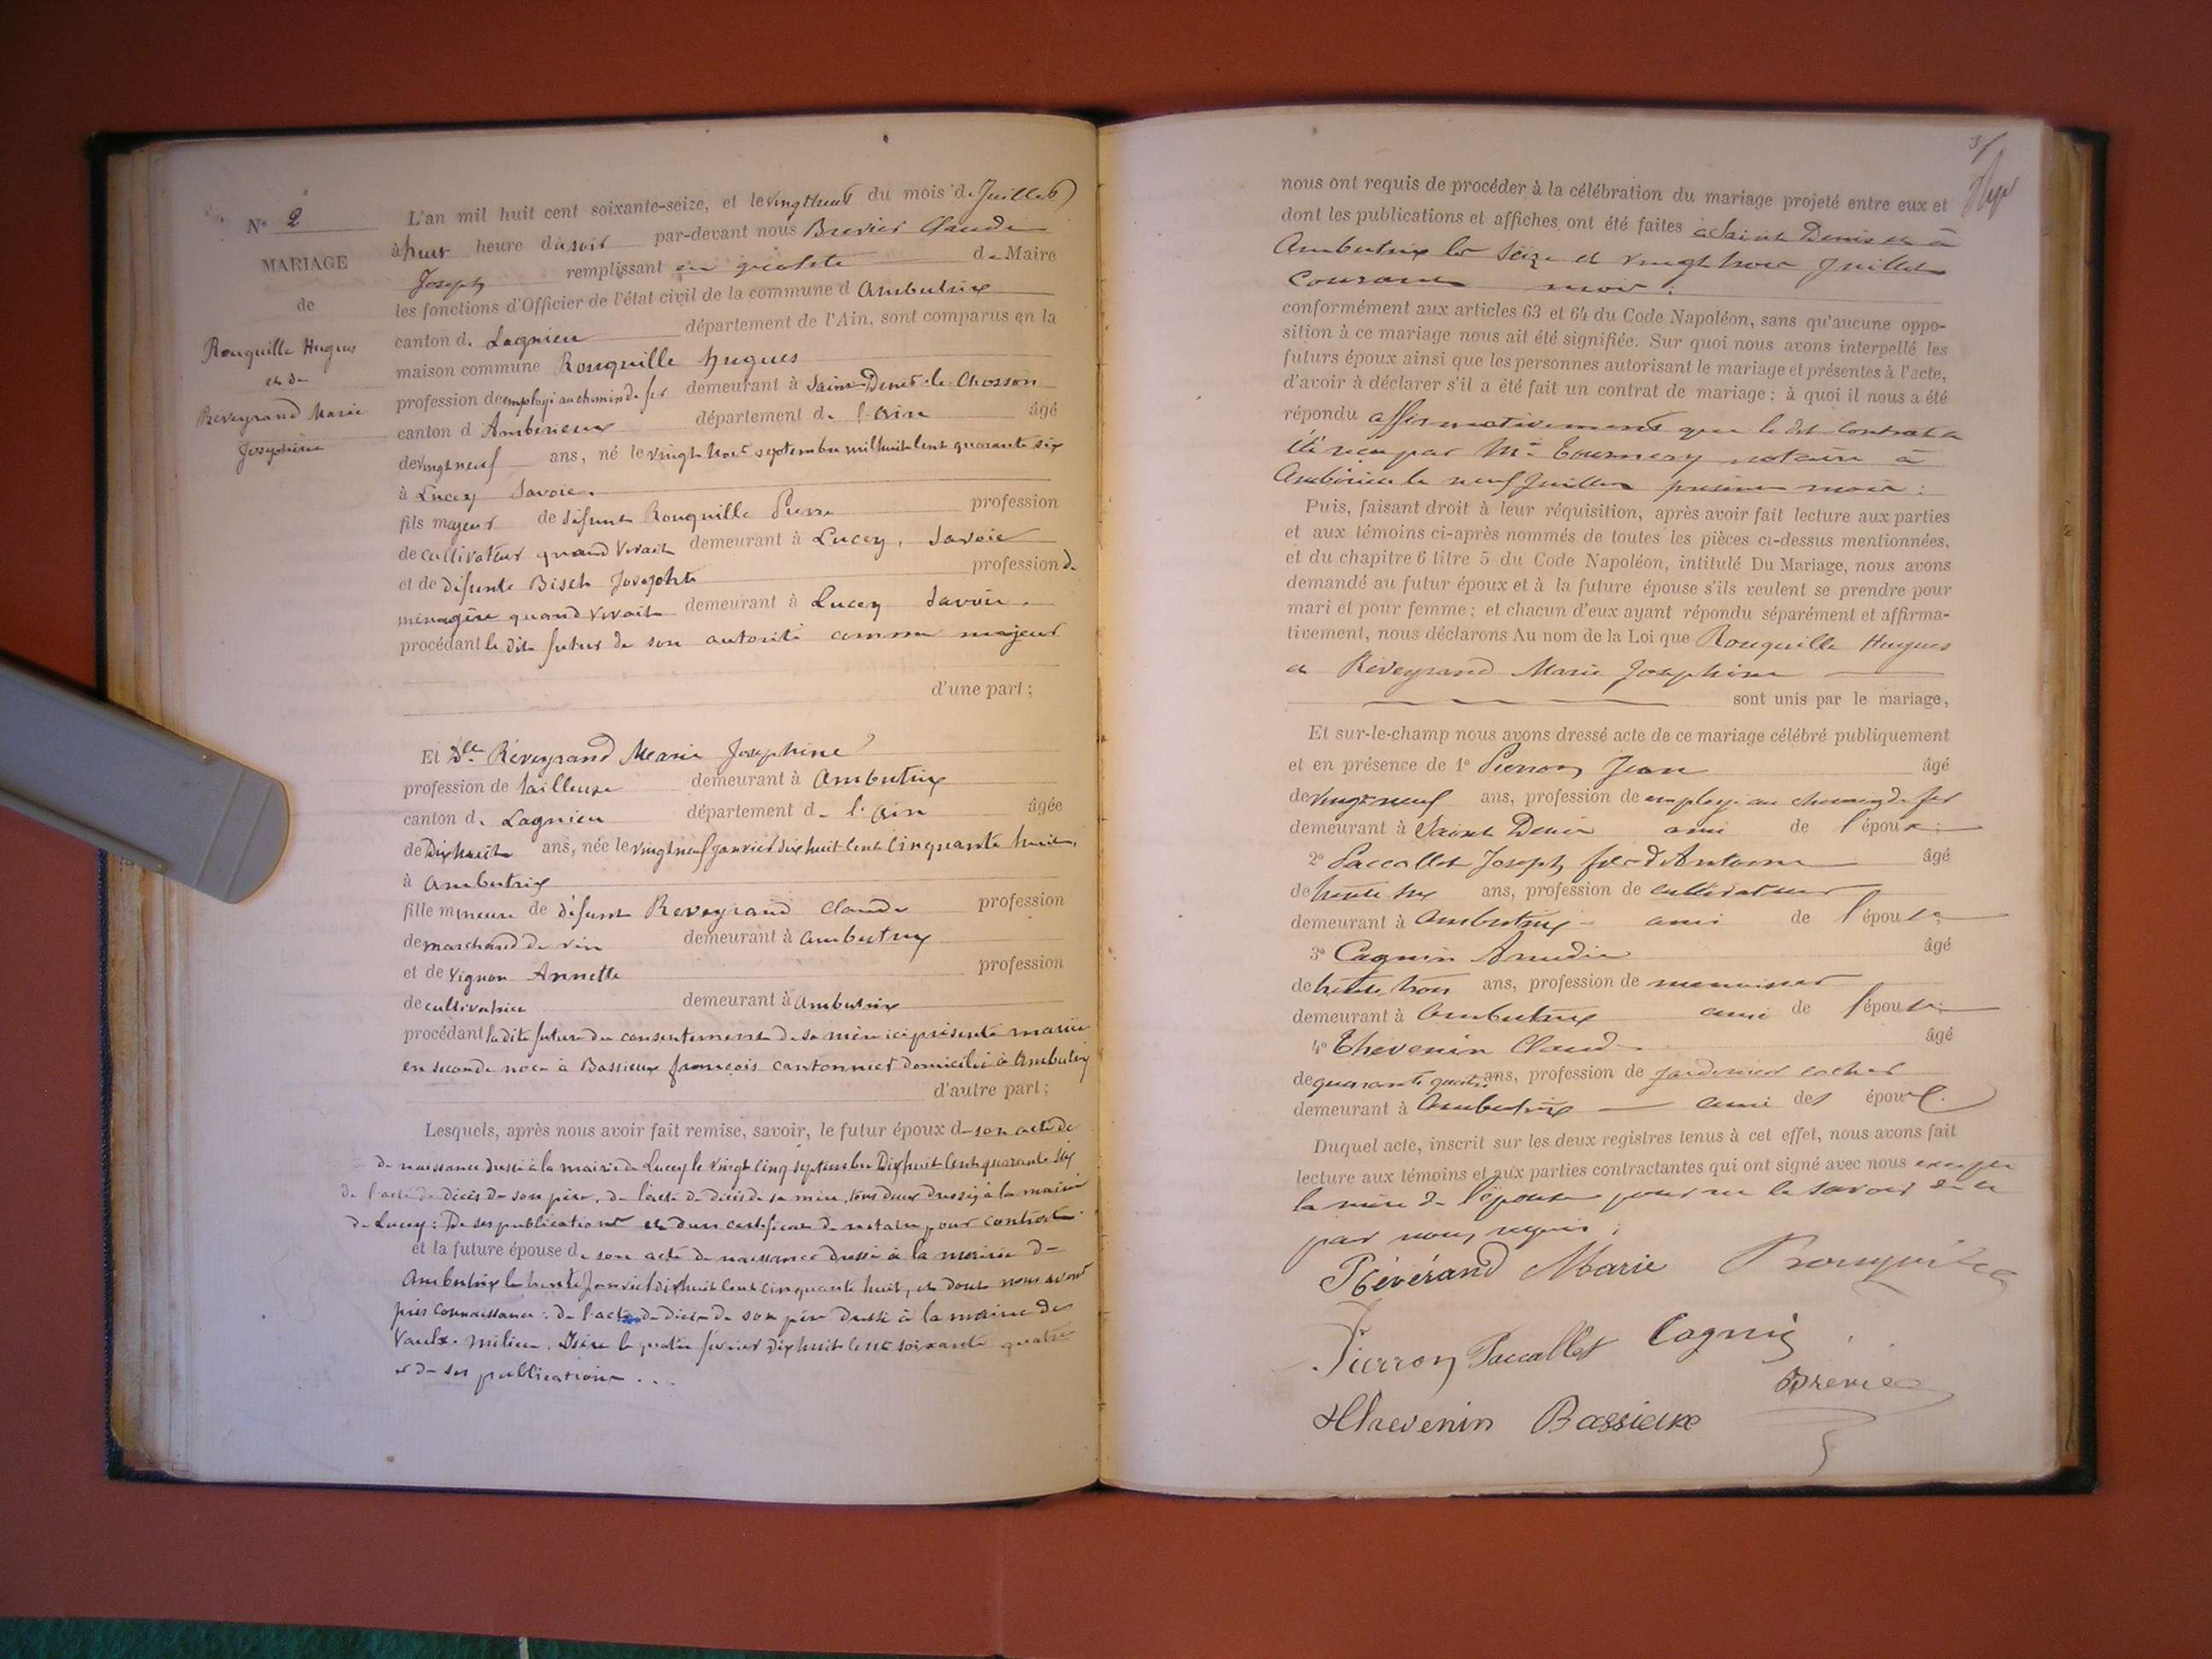 N° 2
MARIAGE
de
Rouquille Hugues
et de
Reveyrand Marie
Josephine
L'an mil huit cent soixante-seize, et le vingt huit du mois de Juillet
à huit heure du soir par-devant nous Brevier Claude
Joseph remplissant en qualité de Maire
les fonctions d'Officier de l'état civil de la commune d Ambutrix
canton de Lagnieu département de l'Ain, sont comparus en la
maison commune Rouquille hugues
profession de employé au chemin de fer demeurant à Saint Denis le Chosson
canton d Ambérieux département de l'Ain âgé
de vingt neuf ans, né le vingt trois septembre mil huit cent quarante six
à Lucey Savoie.
fils majeur de défunt Rouquille Pierre profession
de cultivateur quand vivait demeurant à Lucey, Savoie
et de défunte Bisch Josephte profession de
ménagère quand vivait demeurant à Lucey Savoie.
procédant le dit futur de son autorité comme majeur
d'une part ;
Et Dlle Réveyrand Marie Josephine
profession de tailleuse demeurant à Ambutrix
canton de Lagnieu département de l'Ain âgée
de Dix huit ans, née le vingt neuf Janvier dix huit cent cinquante huit,
à Ambutrix
fille mineure de défunt Reveyrand Claude profession
de marchand de vin demeurant à Ambutrix
et de Vignon Annette profession
de cultivatrice demeurant à Ambutrix
procédant la dite future du consentement de sa mère ici présente mariée
en seconde noce à Bassieux françois cantonnier domicilié à Ambutrix
d'autre part ;
Lesquels, après nous avoir fait remise, savoir, le futur époux de son acte de
de naissance dressé à la mairie de Lucey le vingt cinq septembre Dix huit cent quarante six
de l'acte de décès de son père, de l'acte de décès de sa mère, tous deux dressés à la mairie
de Lucey : De ses publications et d'un certificat de notaire pour contrat
et la future épouse de son acte de naissance dressé à la mairie de
Ambutrix le trente Janvier dix huit cent cinquante huit, et dont nous avons
pris connaissance : de l'acte de décès de son père dressé à la mairie de
Vaulx-Milieu, Isère le quatre février dix huit cent soixante quatre
et de ses publications ...
3
nous ont requis de procéder à la célébration du mariage projeté entre eux et
dont les publications et affiches ont été faites à Saint Denis et à
Ambutrix les seize et vingt trois Juillet
courant mois :
conformément aux articles 63 et 64 du Code Napoléon, sans qu'aucune oppo-
sition à ce mariage nous ait été signifiée. Sur quoi nous avons interpellé les
futurs époux ainsi que les personnes autorisant le mariage et présentes à l'acte,
d'avoir à déclarer s'il a été fait un contrat de mariage ; à quoi il nous a été
répondu affirmativement que le dit contrat a
été reçu par Me notaire à
Ambérieu le neuf Juillet présent mois :
Puis, faisant droit à leur réquisition, après avoir fait lecture aux parties
et aux témoins ci-après nommés de toutes les pièces ci-dessus mentionnées,
et du chapitre 6 titre 5 du Code Napoléon, intitulé Du Mariage, nous avons
demandé au futur époux et à la future épouse s'ils veulent se prendre pour
mari et pour femme ; et chacun d'eux ayant répondu séparément et affirma-
tivement, nous déclarons Au nom de la Loi que Rouquille Hugues
et Réveyrand Marie Josephine
sont unis par le mariage,
Et sur-le-champ nous avons dressé acte de ce mariage célébré publiquement
et en présence de 1° Pierron Jean âgé
de vingt neuf ans, profession de employé au chemin de fer
demeurant à Saint Denis ami de l'époux :
2° Paccallet Joseph fils d'Antoine âgé
de trente six ans, profession de cultivateur
demeurant à Ambutrix ami de l'épouse
3° Cagnin Amédée âgé
de trente trois ans, profession de menuisier
demeurant à Ambutrix ami de l'épouse :
4° Thevenin Claude âgé
de quarante quatre ans, profession de jardinier cocher
demeurant à Ambutrix ami de l épouse.
Duquel acte, inscrit sur les deux registres tenus à cet effet, nous avons fait
lecture aux témoins et aux parties contractantes qui ont signé avec nous excepté
la mère de l'épouse pour ne le savoir de ce
par nous requis ;
Révérand Marie Rouquille
Pierron Paccallet Cagnin
Brevier
Thevenin Bassieux